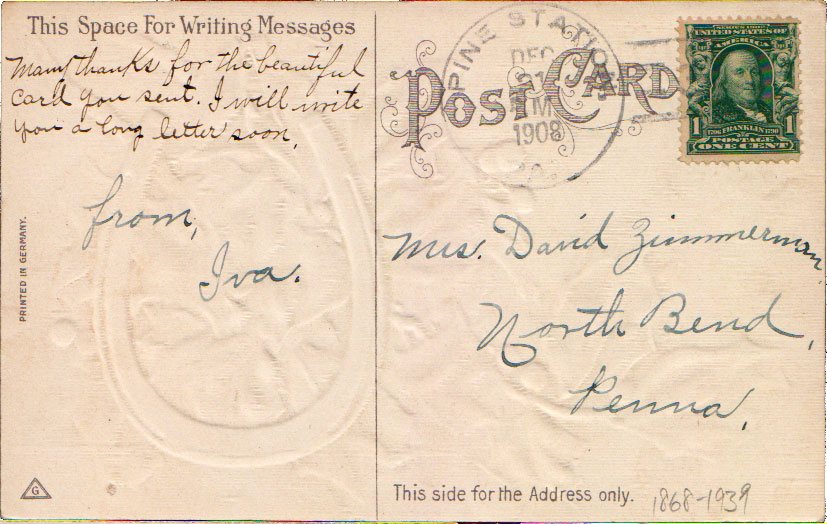 This Space For Writing Messages
Many thanks for the beautiful
Card you sent. I will write
you a long letter soon.
from,
Iva.
PRINTED IN GERMANY.
G
POST CARD
PINE STATIO
DEC
1908
SERIES 1902
UNITED STATES OF
AMERICA
1 1706 FRANKLIN 1790 1
POSTAGE
ONE CENT
Mrs. David Zimmerman
North Bend,
Penna.
This side for the Address only.
1868-1939